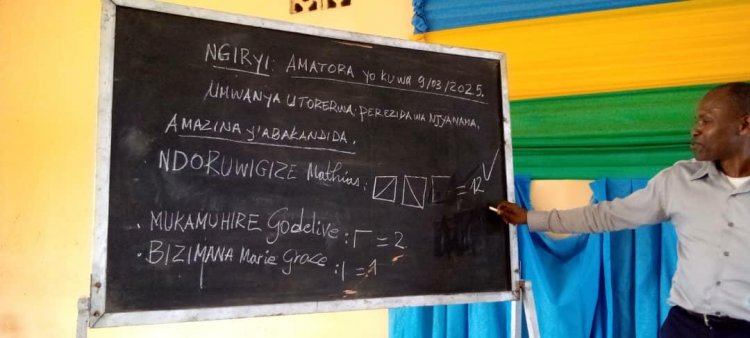 NGIRYI: AMATORA yo KUWA 9/03/2025.
UMWANYA UTORERWA: PEREZIDA WA NJYANAMA.
AMAZINA y'ABAKANDIDA.
NDORUWIGIZE Mathias: = 12
. MUKAMUHIRE Godelive: = 2
. BIZIMANA Marie Grace: = 1